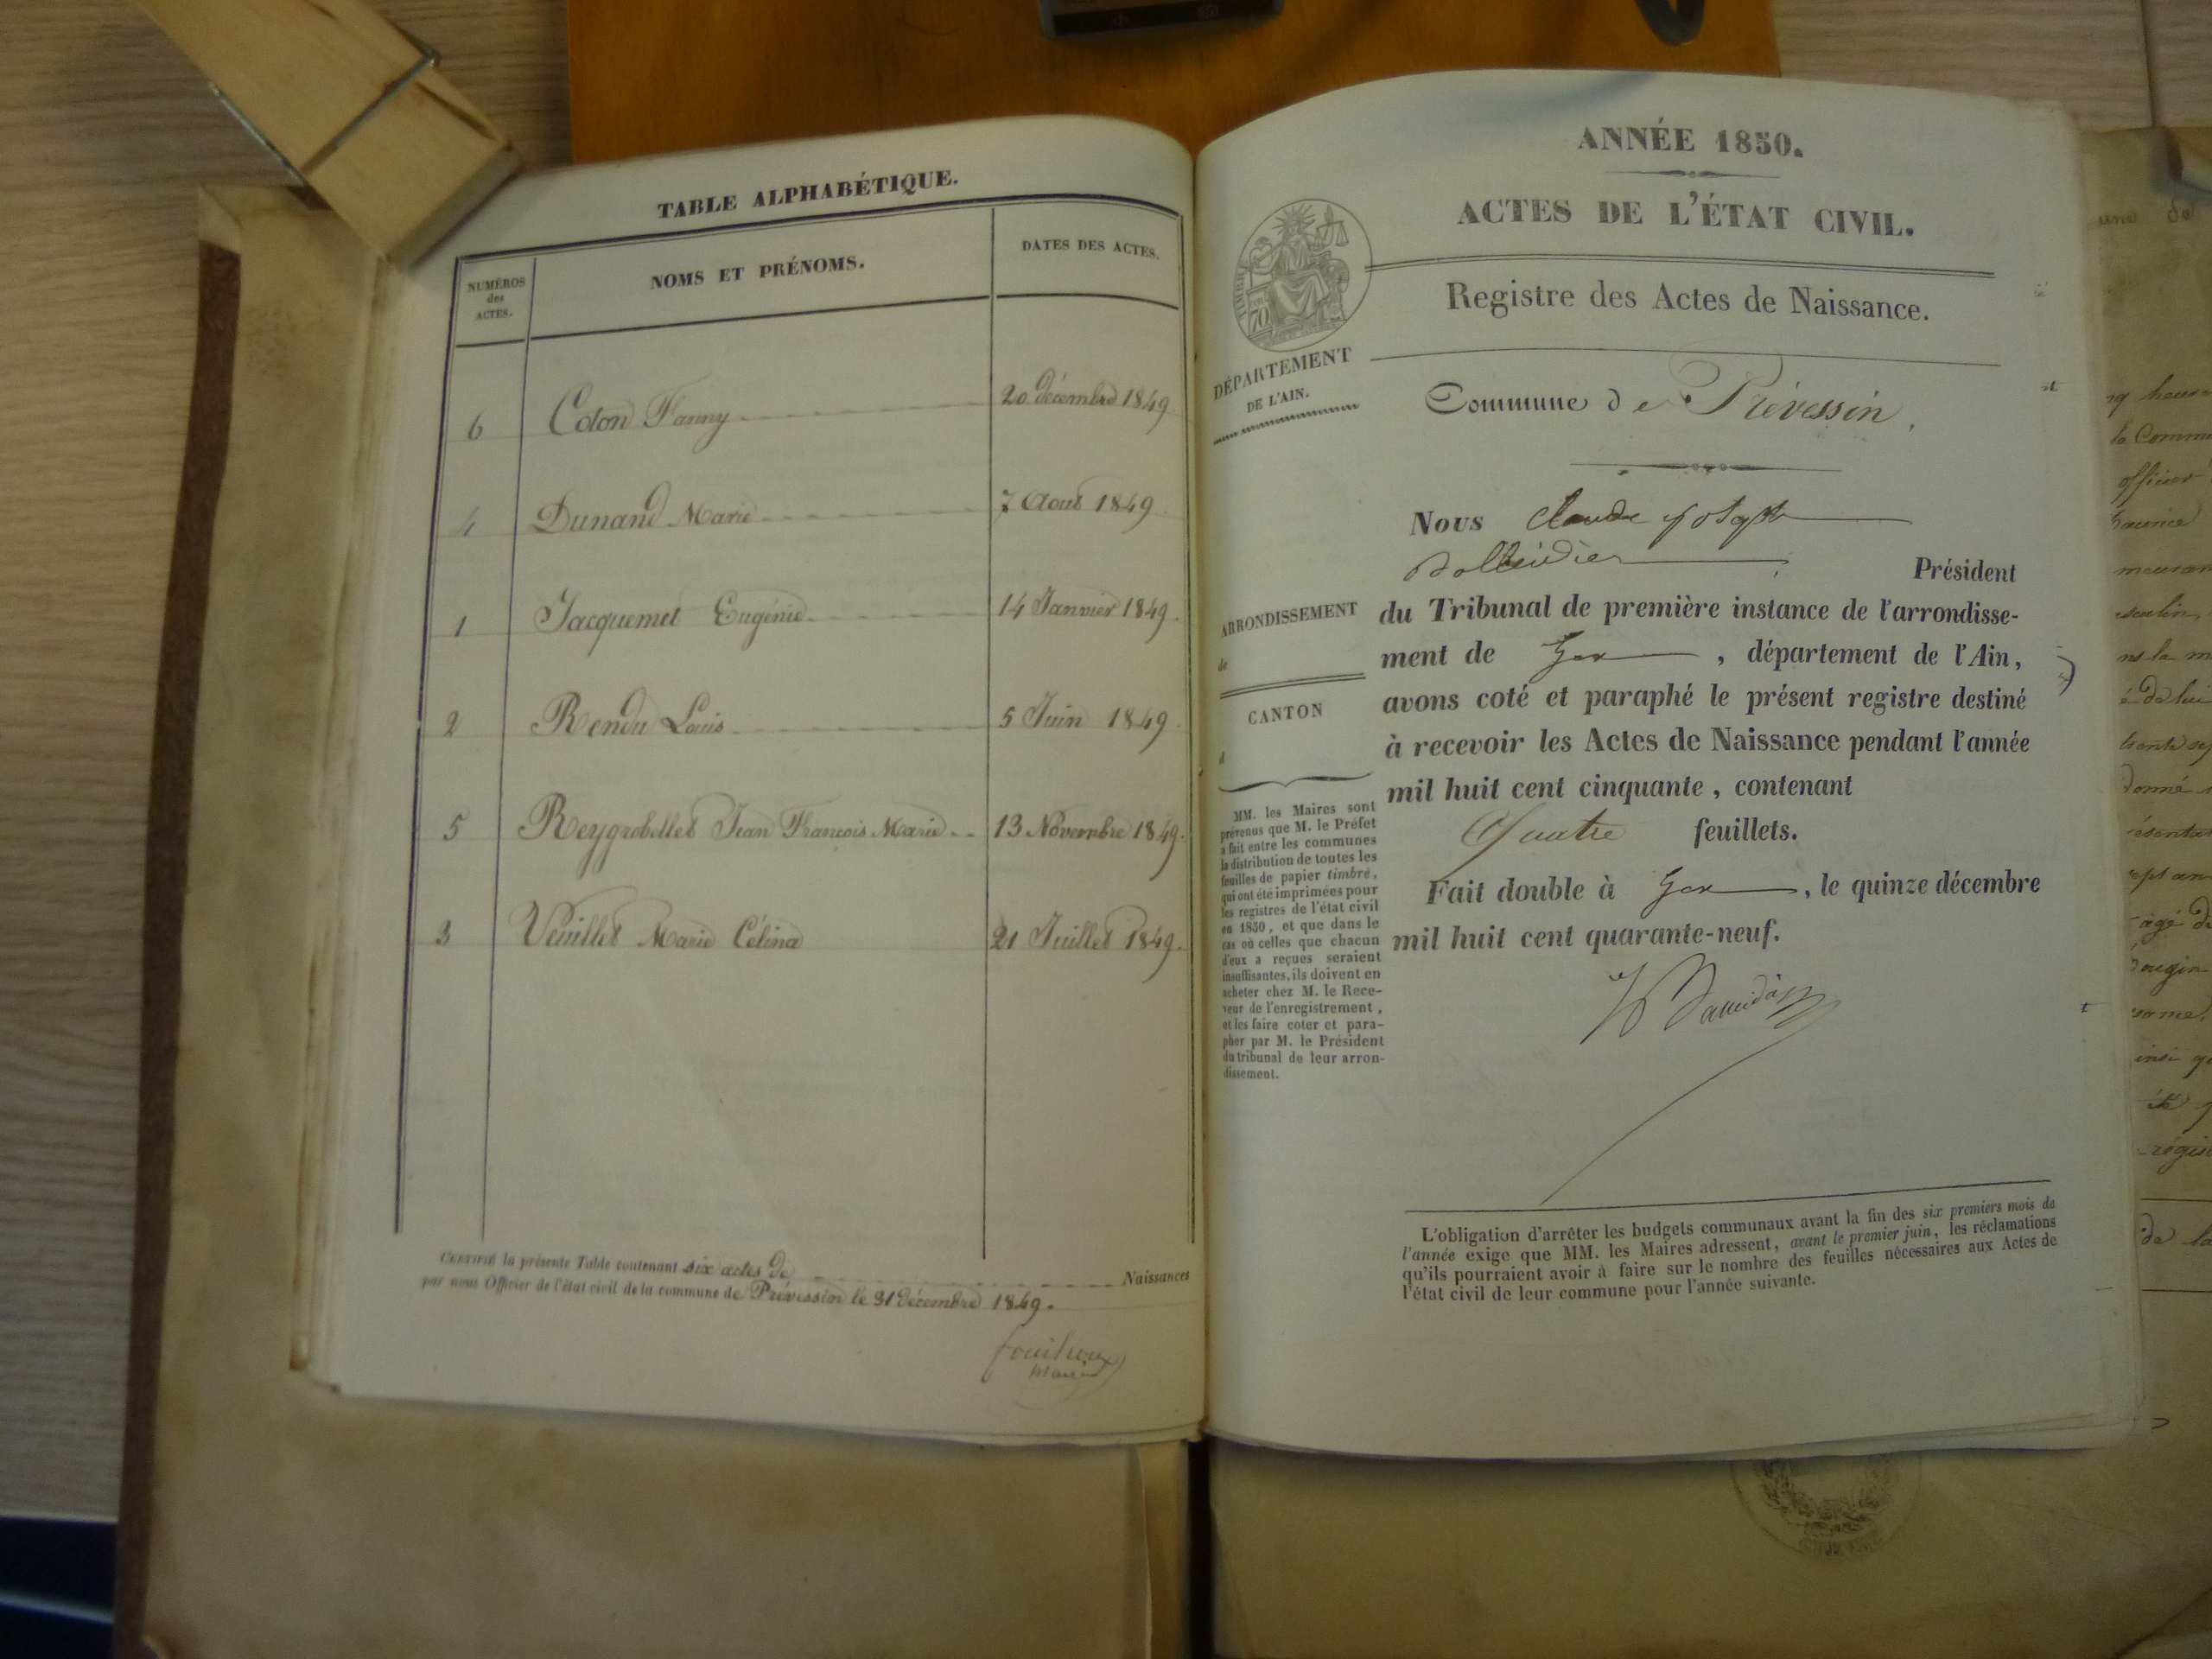 TABLE ALPHABÉTIQUE.
NUMÉROS
des
ACTES.
NOMS ET PRÉNOMS.
DATES DES ACTES.
6 Colon Fanny 20 décembre 1849
4 Dunand Marie 7 Aout 1849
1 Jacquemet Eugénie 14 Janvier 1849.
2 Rendu Louis 5 Juin 1849
5 Reygrobellet Jean François Marie 13 Novembre 1849.
3 Veuillet Marie Célina 21 Juillet 1849.
CERTIFIÉ la présente Table contenant six actes de Naissances
par nous Officier de l'état civil de la commune de Prévessin le 31 décembre 1849.
maire
ANNÉE 1850.
ACTES DE L'ÉTAT CIVIL.
Registre des Actes de Naissance.
TIMBRE
70
DÉPARTEMENT
DE L'AIN.
Commune de Prévessin.
Nous Claude joseph
Président
du Tribunal de première instance de l'arrondisse-
ment de Gex, département de l'Ain,
avons coté et paraphé le présent registre destiné
à recevoir les Actes de Naissance pendant l'année
mil huit cent cinquante, contenant
Quatre feuillets.
Fait double à Gex, le quinze décembre
mil huit cent quarante-neuf.
ARRONDISSEMENT
de
CANTON
d
MM. les Maires sont
prévenus que M. le Préfet
a fait entre les communes
la distribution de toutes les
feuilles de papier timbré,
qui ont été imprimées pour
les registres de l'état civil
en 1850, et que dans le
cas où celles que chacun
d'eux a reçues seraient
insuffisantes, ils doivent en
acheter chez M. le Rece-
veur de l'enregistrement,
et les faire coter et para-
pher par M. le Président
du tribunal de leur arron-
dissement.
L'obligation d'arrêter les budgets communaux avant la fin des six premiers mois de
l'année exige que MM. les Maires adressent, avant le premier juin, les réclamations
qu'ils pourraient avoir à faire sur le nombre des feuilles nécessaires aux Actes de
l'état civil de leur commune pour l'année suivante.